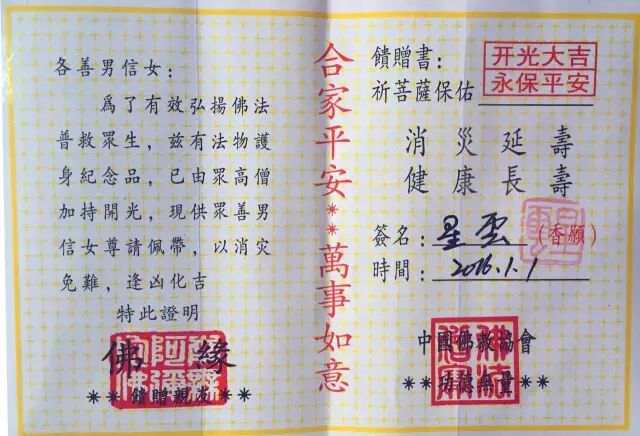 各善男信女：
爲了有效弘揚佛法
普救眾生，兹有法物護
身紀念品，已由眾高僧
加持開光，現供眾善男
信女尊請佩帶，以消灾
免難，逢凶化吉
特此證明
佛緣
**饋贈親友**
合家平安**萬事如意
饋贈書：
祈菩薩保佑
开光大吉
永保平安
消灾延壽
健康長壽
簽名：星雲（香願）
時間：2016.1.1
中國佛教協會
**功德無量**